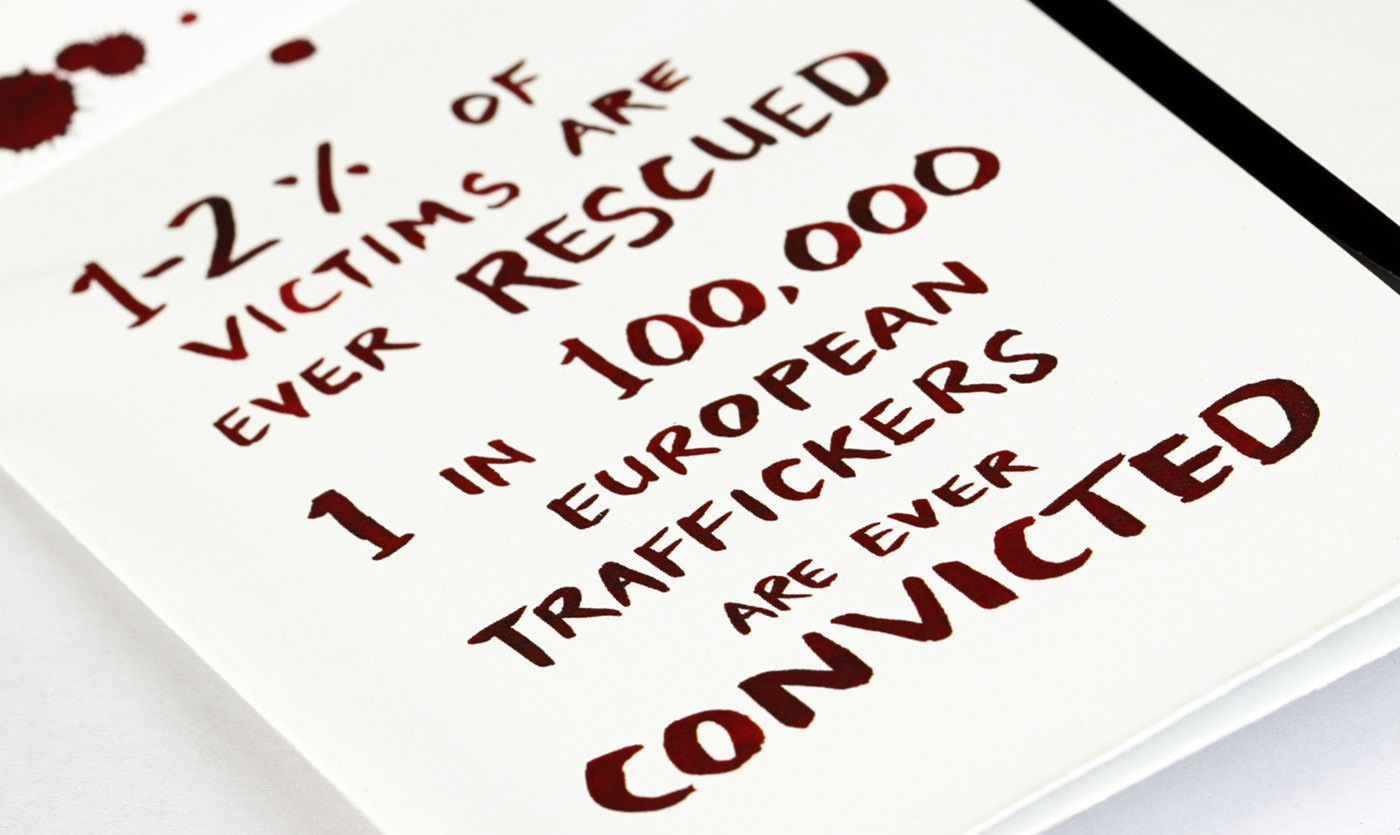 1-2% OF
VICTIMS ARE
EVER RESCUED
1 IN 100,000
EUROPEAN
TRAFFICKERS
ARE EVER
CONVICTED